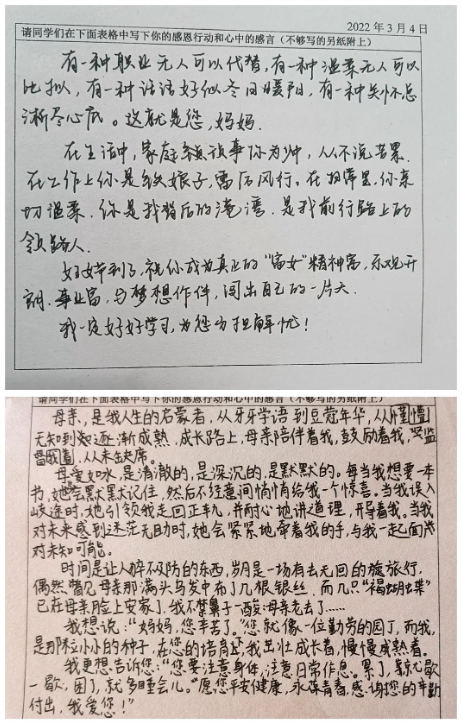 2022年3月4日
请同学们在下面表格中写下你的感恩行动和心中的感言（不够写的另纸附上）
有一种职业无人可以代替，有一种温柔无人可以
比拟，有一种话语好似冬日暖阳，有一种关怀总
渐尽心底。这就是您，妈妈.
在生活中，家庭琐事你为冲，从不说苦累.
在工作上你是铁娘子，雷厉风行。在相处里，你亲
切温柔.你是我背后的港湾.是我前行路上的
领路人.
妇女节到了，祝你成为真正的“富女”精神富，乐观开
朗.事业富，与梦想作伴，闯出自己的一片天.
我一定好好学习，为您分担解忧！
请同学们在下面表格中写下你的感恩行动和心中的感言（不够写的另纸附上）
母亲，是我人生的启蒙者，从牙牙学语到豆蔻年华，从懵懂
无知到逐渐成熟，成长路上，母亲陪伴着我，鼓励着我，监
督着，从未缺席。
母爱如水，是清澈的，是深沉的，是默默的。每当我想要一本
书，她会默默记住，然后不经意间悄悄给我一个惊喜。当我误入
歧途时，她引领我走回正轨，并耐心地讲道理，开导着我，当我
对未来感到迷茫无助时，她会紧紧地牵着我的手，与我一起面对
对未知可能。
时间是让人猝不及防的东西，岁月是一场有去无回的旅行，
偶然瞥见母亲那满头乌发中布了几根银丝，而几只“褐蝴蝶”
已在母亲脸上安家了，我不禁鼻子一酸：母亲老了……
我想说：“妈妈，您辛苦了。”您就像一位勤劳的园丁，而我，
是那粒小小的种子，在您的培育下，我茁壮成长着，慢慢成熟着。
我更想告诉您：“您要注意身体，注意日常作息。累了，就歇
一歇，困了，就多睡会儿。”愿您平安健康，永葆青春，感谢您的不断
付出，我爱您！”